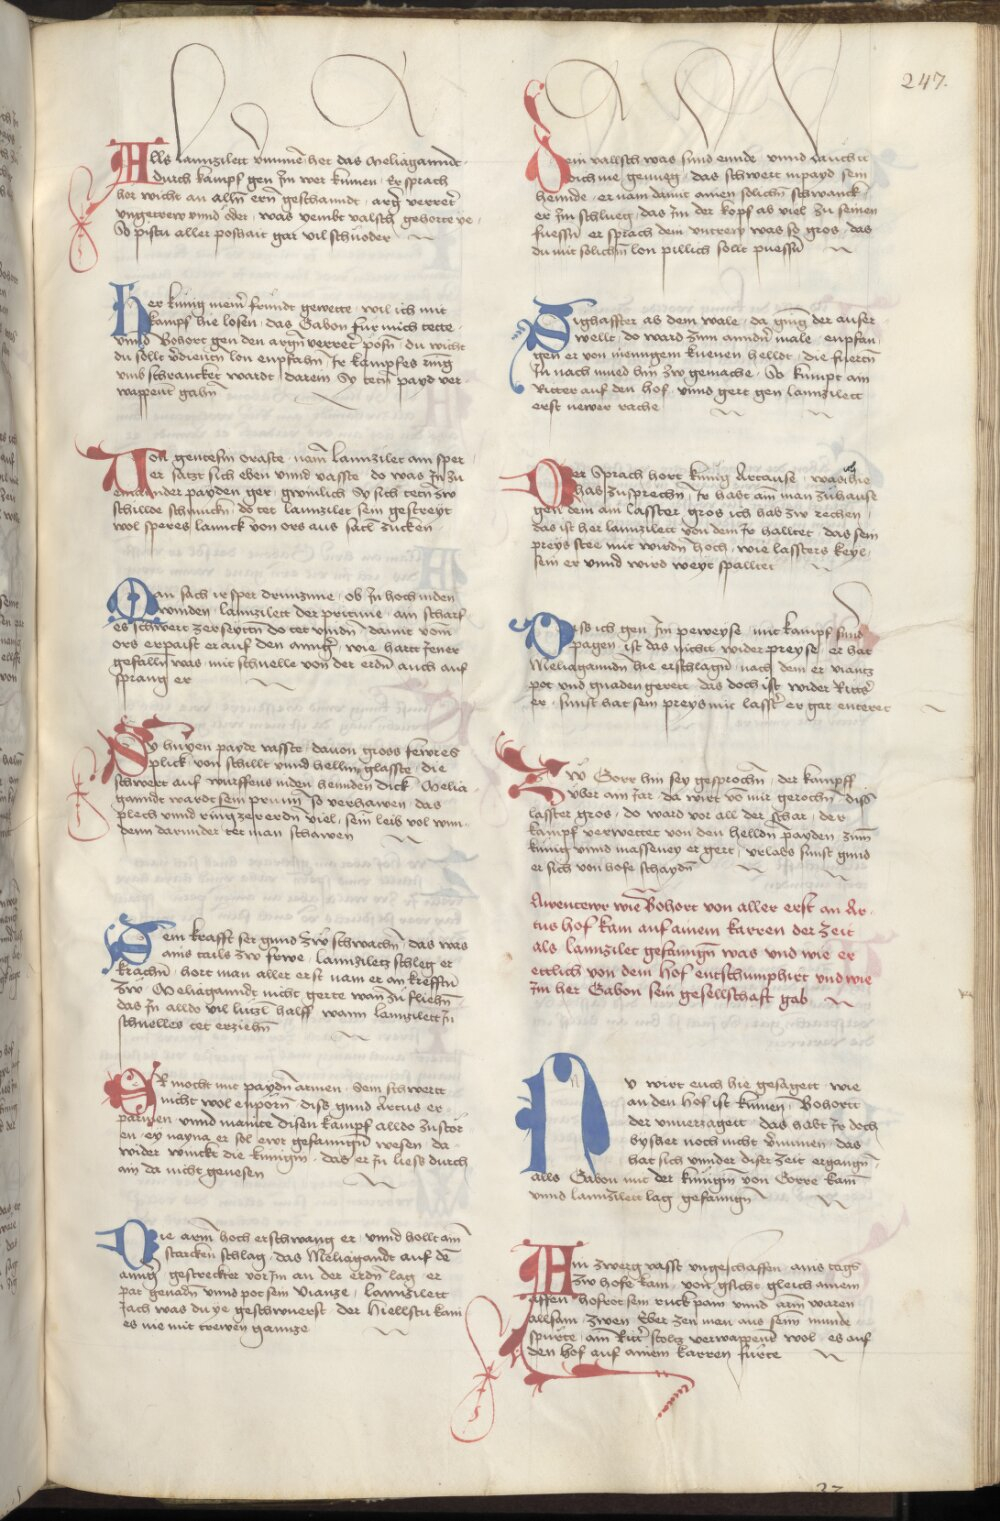 247.
Alls lannzilett vernumē het das Meliagannt
durch kampf gen Im wer kumen Er sprach
her wicht an allñ ern geschanndt arger verreter
ungetrew vnnd öder was
So pistu aller poshait gar vil schnöder
Her künig meiner fründt gewette wil ich mit
kampf hie losen das Gabon für mich tette
vnnd Bohort gen den argñ verreter posñ du wicht
du sollt verdientñ lon enpfahñ Ir kampfes ring
vmb schrancket wardt darein Sy tetñ payd ver
wappent gahñ
Von gentesin oraste nam lannzilet ain sper
er satzt sich eben vnnd vasste do was In zu
einannder payden ger grymlich Sy sich tetñ zw
schillde schmuckñ do tet lannzilet sein gestreyt
wol speres lannck von ors aus satel zucken
Man sach ir sper drumzune ob In hoch inden
winden lannzilett der pritune ain scharf
es schwert zerseytñ do tet vindñ damit vom
ors erpaist er auf den anngr wie hart Jener
gefallñ was mit schnelle von der erdñ auch auf
sprang er
Sy huwen payde vasste dauon gross fewres
plick von schillt vnnd hellm glasste die
schwert auf wurffens inden henndenn dick Melia
ganndt wardt sein prunn so verhawen das
plech vnnd ring zererdñ viel sein leib vol wun
denn darunder tet man schawen
Sein krafft set gund zw schwachñ das was
ains tails zw frwe lannziletz schleg er
krachñ hort man aller erst nam er an kreffñ
zw Meliaganndt nicht gerte wan zu fliehñ
das In alldo vil lutzl halff wann lannzilett In
schnelles tet erziehñ
Er mocht mit paydñ armen Sein schwertt
nicht wol enporñ diss gund Artus er
parmen vnnd mainte disen kampf alldo zustör
en ey nayna er sol ewr gefanngñ wesen da
wider winckt die künigin das er In liess durch
ain da nicht genesen
Die arm hoch erschwang er vnnd hollt ain
starcken schlag das Meliagandt auf dē
anngr gestreckter vor Im an der erdñ lag er
pat genadñ vnnd pot sein vianze lannzilett
Jach was du ye geschwuerst der hiellstu kain
es nie mit trewen gannze
Dein vallsch was sund ennde vnnd
dich nie genueg das schwert inpayd sein
hennde er nam damit ainen solichñ schwanck
er In schlueg das Im der kopf ab viel zu seinen
fuessñ er sprach dein vntrew was so gros das
du mit solichm lon pillich sollt puessñ
Sighaffter ab dem wale da ging der auser
wellt do ward zum anndñ male enpfan
gen er von menngem kuenen helldt die fuertñ
In nach mued hin zw gemache So kumpt ain
Ritter auf den hof vnnd gert gen lannzilett
erst newer rache
Der Sprach hort künig Artause was ich hie
hab zusprechñ Ir habt ain man zuhause
gen dem ain lasster gros ich hab zw rechen
das ist her lannzilett von dem Ir halltet das sein
preys stee mit wirdñ hoch wie lassters keyl
sein er vnnd wird weyt spalltet
Diss ich gen Im peweyse mit kampf sund
pagen ist das nicht wider preyse er hat
Meliaganndñ hie erschlagñ nach dem er vianz
pot vnd gnaden gerett das doch ist wider Ritter
er sunst hat sein preys mit lasster er gar enteret
Zw Gorr hin sey gesprochñ der kampff
vber ain Jar da wirt vō mir gerochñ diss
lasster gros do ward vor all der schar der
kampf verwettet von den helldñ payden zum
künig vnnd massenney er gert vrlabs sunst gund
er sich von hofe schaydñ
Awentewr wie Bohort von aller erst an Ar
tus hof kam auf ainem karren der zeit
als lannzilet gefanngñ was vnd wie er
ettlich von dem hof entschumphirt vnd wie
Im her Gabon sein gesellschaft gab
Nv wirt euch hie gesagett wie
an den hof ist kumen Bohortt
der vnuerzagett das habt Ir doch
bysher noch nicht vernumen das
hat sich vnnder diser zeit ergangñ
alls Gabon mit der künigin von Gorre kam
vnnd lannzilett lag gefanngñ
Ain zwerg vasst vngeschaffen ains tags
zw hofe kam von gsicht gleich ainem
affen hofrot sein ruck pain vnnd arm waren
allsam zwen Eber zen man aus seinem munde
spürte ain Ritter stoltz verwappent wol es auf
den hof auf ainem karren fürte